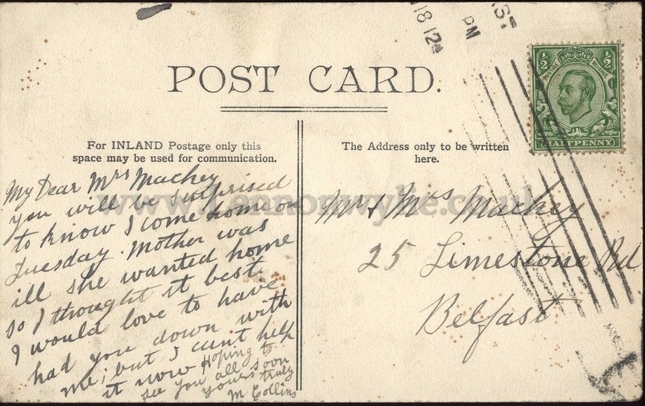 18 12
PM
POST CARD.
½ ½
HALFPENNY
For INLAND Postage only this
space may be used for communication.
The Address only to be written
here.
My Dear Mrs Mackey
you will be surprised
to know I come home on
Tuesday. Mother was
ill she wanted home
so I thought it best
I would love to have
had you down with
me; but I cant help
it now Hoping to
see you all soon
yours truly
M Collins
Mr & Mrs Mackey
25 Limestone Rd
Belfast